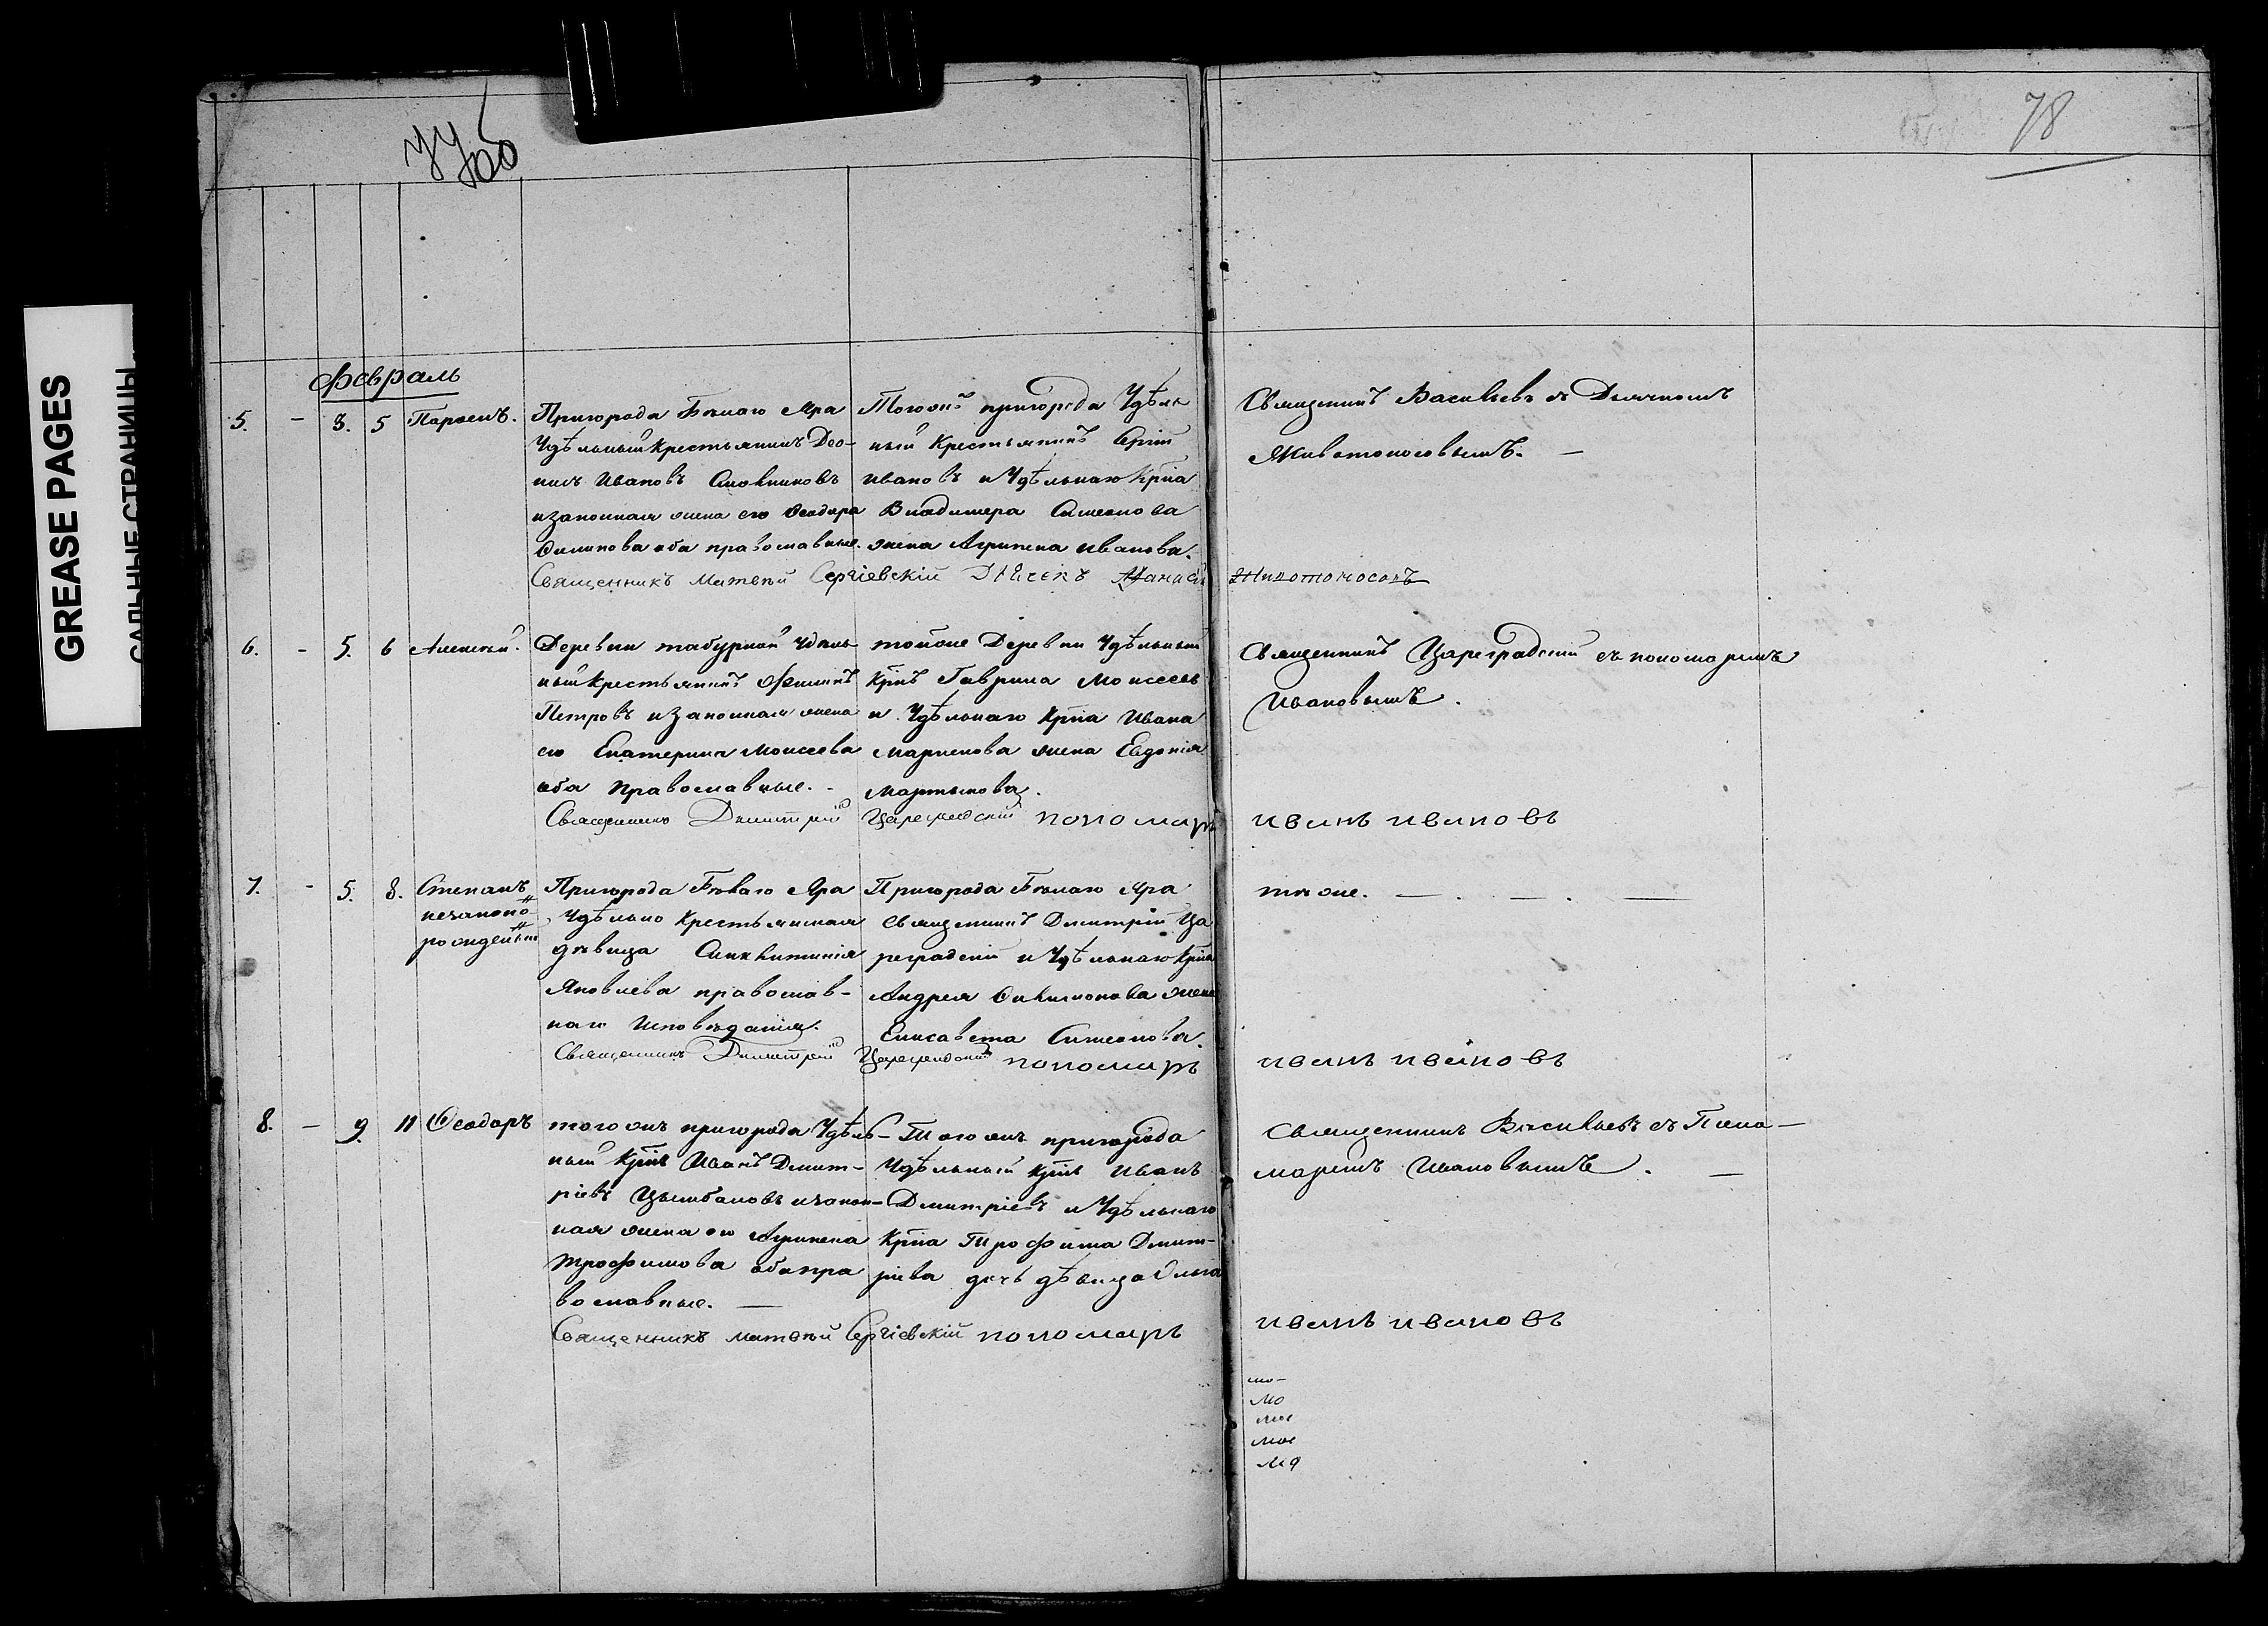 GREASE PAGES
САЛЬНЫЕ СТРАНИЦЫ
77об
78
Февраль
5. - 3. 5 Парѳенъ.
Пригорода Бѣлаго Яра
Удѣльный крестьянинъ Део-
нисъ Ивановъ
и законная жена его Ѳеодора
Филипова оба православные.
Тогожъ пригорода Удѣль
ный Крестьянинъ Сергій
Ивановъ и Удѣльнаго Крна
Владимера Симеонова
жена Агрипена Иванова.
Священникъ Васильевъ съ Дьячкомъ
Животоносовымъ. -
Священникъ Матвѣй Сергіевскій Дьячекъ Афанасій Животоносовъ
6. - 5. 6 Алексѣй.
Деревни табурной Удѣль
ный крестьянинъ Филипъ
Петровъ и законная жена
его Екатерина Моисеева
оба православные. -
тойже Деревни Удѣльный
Крнъ Гаврила Моисеевъ
и Удѣльнаго Крна Ивана
жена Евдокія
Мартынова.
Священникъ Цареградскій съ пономаремъ
Ивановымъ.
Священникъ Димитрій Цареградскій пономарь иванъ ивановъ
7. - 5. 8. Степанъ
незаконно-
рожденный
Пригорода Бѣлаго Яра
Удѣльно Крестьянская
дѣвица Синклитикія
Яковлева православ-
наго Исповѣданія.
Пригорода Бѣлаго Яра
Священникъ Дмитрій Ца
реградскій и Удѣльнаго Крна
Андрея Филимонова жена
Елисавета Симеонова.
тѣже. — . — . —
Священникъ Димитрій Цареградскій пономарь иванъ ивановъ
8. - 9. 11 Ѳеодоръ
того жъ пригорода Удѣль-
ный Крнъ Иванъ Дмит-
ріевъ Цымбаловъ и закон-
ная жена его Агрипена
Трофимова оба пра
вославные. —
Того жъ пригорода
Удѣльный Крнъ Иванъ
Дмитріевъ и Удѣльнаго
Крна Трофима Дмит-
ріева дочь дѣвица Ольга
Священникъ Васильевъ съ Поно-
маремъ Ивановымъ. —
Священникъ Матвѣй Сергіевскій пономарь иванъ ивановъ
мо-
мо
мое
мое